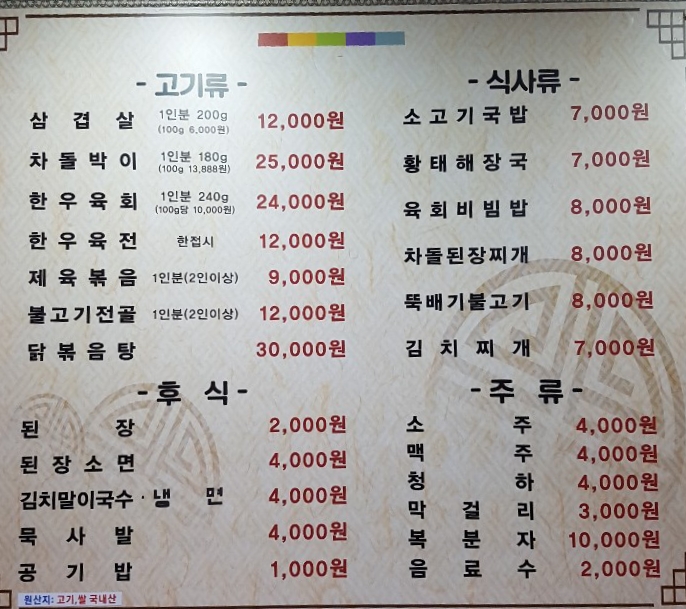 - 고기류 -
삼겹살 1인분 200g (100g 6,000원) 12,000원
차돌박이 1인분 180g (100g 13,888원) 25,000원
한우육회 1인분 240g (100g당 10,000원) 24,000원
한우육전 한접시 12,000원
제육볶음 1인분(2인이상) 9,000원
불고기전골 1인분(2인이상) 12,000원
닭볶음탕 30,000원
- 후 식 -
된장 2,000원
된장소면 4,000원
김치말이국수 · 냉면 4,000원
묵사발 4,000원
공기밥 1,000원
원산지: 고기,쌀 국내산
- 식사류 -
소고기국밥 7,000원
황태해장국 7,000원
육회비빔밥 8,000원
차돌된장찌개 8,000원
뚝배기불고기 8,000원
김치찌개 7,000원
- 주 류 -
소주 4,000원
맥주 4,000원
청하 4,000원
막걸리 3,000원
복분자 10,000원
음료수 2,000원